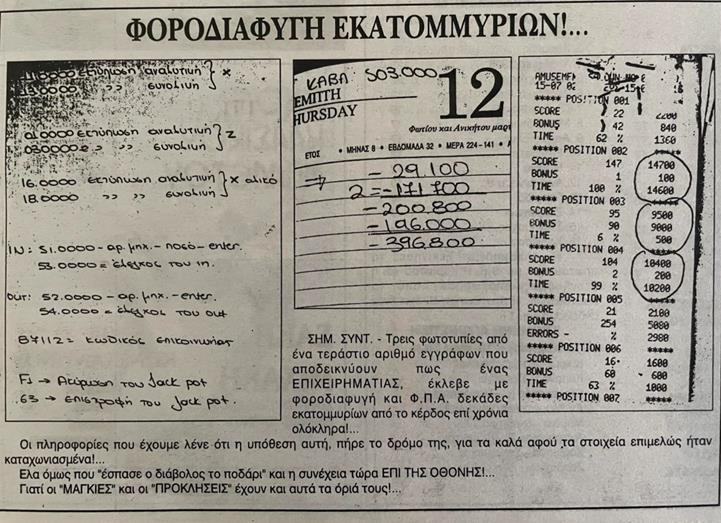 ΦΟΡΟΔΙΑΦΥΓΗ ΕΚΑΤΟΜΜΥΡΙΩΝ!...
εκτύπωση αναλυτική } x
13.0000 ,, συνολική
01.0000 εκτύπωση αναλυτική } z
,, συνολική
16.0000 εκτύπωση αναλυτική } x
18.0000 ,, ,, συνολική
IN: 51.0000 - αρ. μηχ. - ποσό - enter.
53.0000 = έλεγχος του in.
OUT: 52.0000 - αρ. μηχ. - enter.
54.0000 = έλεγχος του out
87112 = κωδικός επικοινωνίας
→ Ακύρωση του Jack pot
63 → επιστροφή του Jack pot.
ΚΑΒΑ 503.000
ΕΜΙΤΗ
HURSDAY
12
Φωτίου και Ανικήτου μαρτ
ΕΤΟΣ • ΜΗΝΑΣ 8 • ΕΒΔΟΜΑΔΑ 32 • ΜΕΡΑ 224-141 •
⇒ - 29.100
2 = - 171.700
- 200.800
- 196.000
- 396.800
15-07
***** POSITION 001
SCORE 22 2200
BONUS 42 840
TIME 62 % 1360
***** POSITION 002 *****
SCORE 147 14700
BONUS 1 100
TIME 100 % 14600
***** POSITION 003 *****
SCORE 95 9500
BONUS 90 9000
TIME 6 % 500
***** POSITION 004 *****
SCORE 104 10400
BONUS 2 200
TIME 99 % 10200
***** POSITION 005 *****
SCORE 21 2100
BONUS 254 5080
ERRORS - % 2980
***** POSITION 006 *****
SCORE 16 1600
BONUS 60 600
TIME 63 % 1000
***** POSITION 007 *****
ΣΗΜ. ΣΥΝΤ. - Τρεις φωτοτυπίες από
ένα τεράστιο αριθμό εγγράφων που
αποδεικνύουν πως ένας
ΕΠΙΧΕΙΡΗΜΑΤΙΑΣ, έκλεβε με
φοροδιαφυγή και Φ.Π.Α. δεκάδες
εκατομμυρίων από το κέρδος επί χρόνια
ολόκληρα!...
Οι πληροφορίες που έχουμε λένε ότι η υπόθεση αυτή, πήρε το δρόμο της, για τα καλά αφού τα στοιχεία επιμελώς ήταν
καταχωνιασμένα!...
Ελα όμως που "έσπασε ο διάβολος το ποδάρι" και η συνέχεια τώρα ΕΠΙ ΤΗΣ ΟΘΟΝΗΣ!...
Γιατί οι "ΜΑΓΚΙΕΣ" και οι "ΠΡΟΚΛΗΣΕΙΣ" έχουν και αυτά τα όριά τους!...